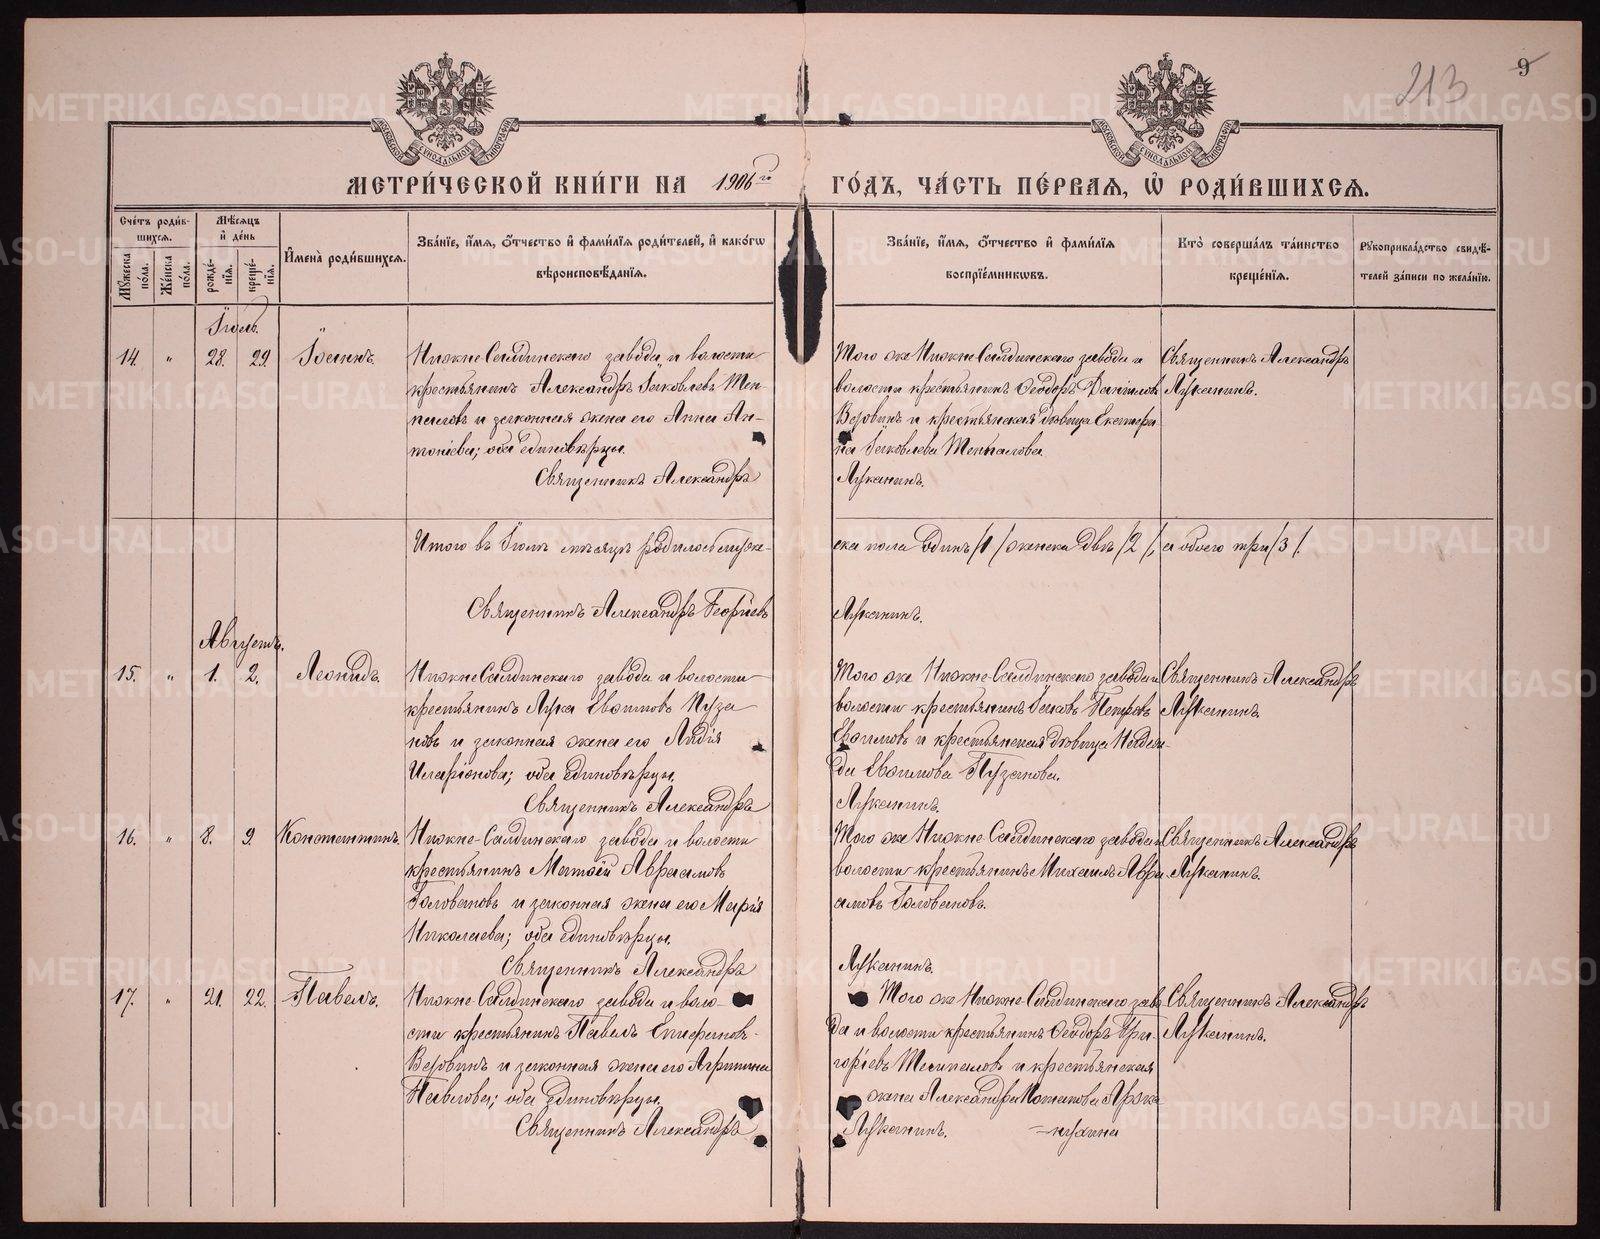 213
9
МОСКОВСКОЙ СѴНОДАЛЬНОЙ ТИПОГРАФІИ
МОСКОВСКОЙ СѴНОДАЛЬНОЙ ТИПОГРАФІИ
МЕТРИ́ЧЕСКОЙ КНИ́ГИ НА 1906го ГО́ДЪ, ЧА́СТЬ ПЕ́РВАѦ, Ѽ РОДИ́ВШИХСѦ.
Сче́тъ роди́в-шихсѧ.
Мꙋжеска по́ла.
Же́нска по́ла.
Мѣсѧцъ и҆ де́нь
рожде́-нїѧ.
креще́-нїѧ.
И҆мена̀ роди́вшихсѧ.
Зва́нїе, и҆́мѧ, ѻ҆́тчество и҆ фами́лїѧ роди́телей, и҆ како́гѡ вѣроисповѣ́данїѧ.
Зва́нїе, и҆́мѧ, ѻ҆́тчество и҆ фами́лїѧ воспрїе́мникѡвъ.
Кто̀ соверша́лъ та́инство креще́нїѧ.
Рꙋкоприкла́дство свидѣ́-телей за́писи по жела́нїю.
Іюль.
14. " 28. 29. Іоаннъ.
Нижне-Салдинскаго завода и волости
крестьянинъ Александръ Іаковлевъ
и законная жена его Анна Ан-
тоніева; оба единовѣрцы.
Священникъ Александръ
Того же Нижне-Салдинскаго завода и
волости крестьянинъ Ѳеодоръ Даніиловъ
Везовинъ и крестьянская дѣвица Екатери
на Іаковлева
Луканинъ.
Священникъ Александръ
Луканинъ.
Итого въ Іюлѣ мѣсяцѣ родилось муже-
ска пола одинъ /1/ женска двѣ /2/, а обоего три /3/.
Священникъ Александръ Георгіевъ
Луканинъ.
Августъ.
15. " 1. 2. Леонидъ.
Нижне-Салдинскаго завода и волости
крестьянинъ Лука Евѳимовъ Пуза
новъ и законная жена его Лидія
Иларіонова; оба единовѣрцы.
Священникъ Александръ
Того же Нижне-Салдинскаго завода и
волости крестьянинъ Іаковъ Петровъ
Евѳимовъ и крестьянская дѣвица Надеж-
да Евѳимова Пузанова.
Луканинъ.
Священникъ Александръ
Луканинъ.
16. " 8. 9. Константинъ.
Нижне-Салдинскаго завода и волости
крестьянинъ Матѳей Авраамовъ
Головановъ и законная жена его Марія
Николаева; оба единовѣрцы.
Священникъ Александръ
Того же Нижне-Салдинскаго завода и
волости крестьянинъ Михаилъ Авра-
амовъ Головановъ.
Луканинъ.
Священникъ Александръ
Луканинъ.
17. " 21. 22. Павелъ.
Нижне-Салдинскаго завода и воло-
сти крестьянинъ Павелъ Епифановъ
Везовинъ и законная жена его Агрипина
Павлова; оба единовѣрцы.
Священникъ Александръ
Того же Нижне-Салдинскаго заво
да и волости крестьянинъ Ѳеодоръ Гри-
горіевъ и крестьянская
жена Александра Потапова
Луканинъ.
Священникъ Александръ
Луканинъ.
METRIKI.GASO-URAL.RU